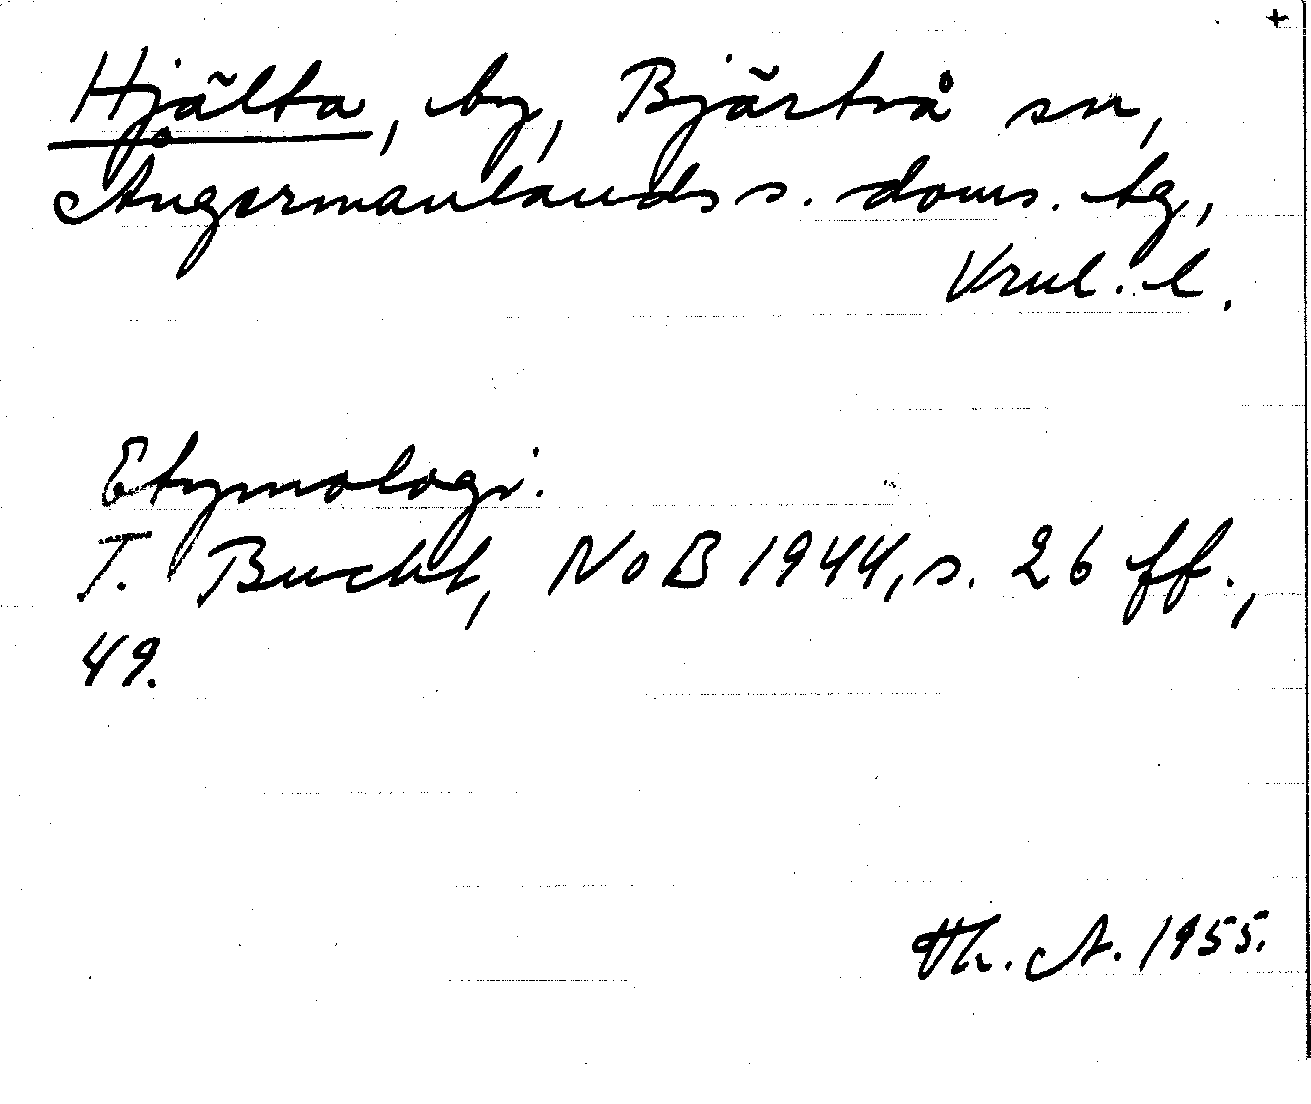 +
Hjälta, by, Bjärtrå sn,
Ångermanlands s. doms. tg,
Vrnl. l.
Etymologi:
T. Bucht, NoB 1944, s. 26 ff.,
49.
Th. A. 1955.